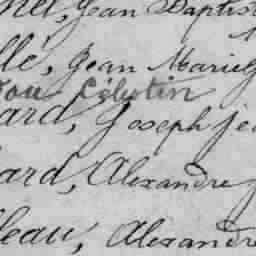 nel, Jean Baptist
lle, Jean Marie
Tou Celestin
ard, Joseph Je
ard, Alexandre J
leau, Alexandre